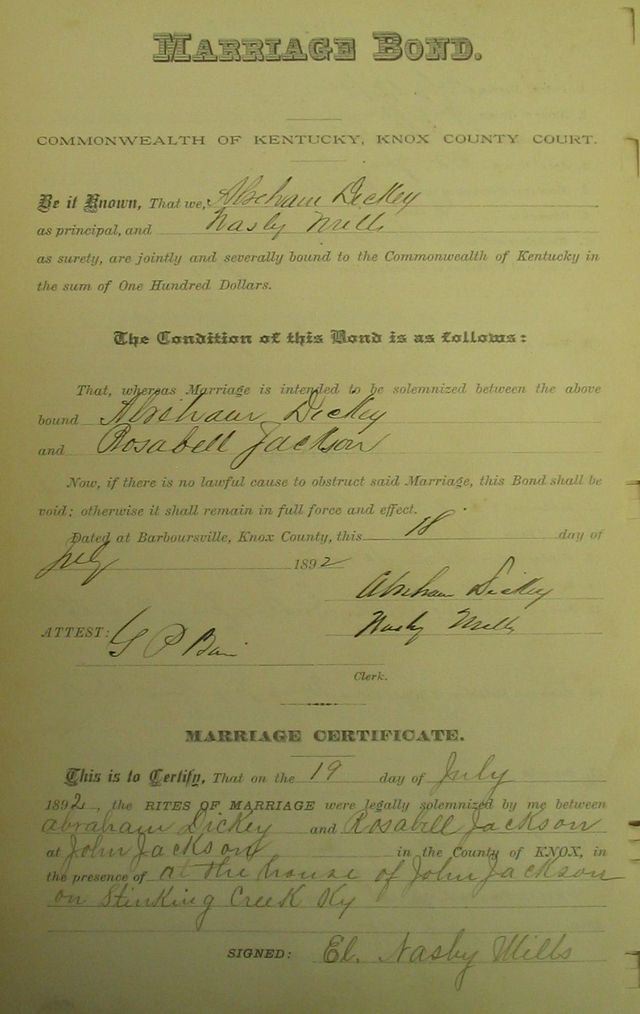 MARRIAGE BOND.
COMMONWEALTH OF KENTUCKY, KNOX COUNTY COURT.
Be it Known, That we, Abraham Dickey
as principal, and Nasby Mills
as surety, are jointly and severally bound to the Commonwealth of Kentucky in
the sum of One Hundred Dollars.
The Condition of this Bond is as follows:
That, whereas Marriage is intended to be solemnized between the above
bound Abraham Dickey
and Rosabell Jackson
Now, if there is no lawful cause to obstruct said Marriage, this Bond shall be
void; otherwise it shall remain in full force and effect.
Dated at Barboursville, Knox County, this 18 day of
July 1892
Abraham Dickey
ATTEST: Nasby Mills
G P
Clerk.
MARRIAGE CERTIFICATE.
This is to Certify, That on the 19 day of July
1892, the RITES OF MARRIAGE were legally solemnized by me between
abraham Dickey and Rosabell Jackson
at John Jackson in the County of KNOX, in
the presence of at the house of John Jackson
on Stinking Creek Ky
SIGNED: El. Nasby Mills